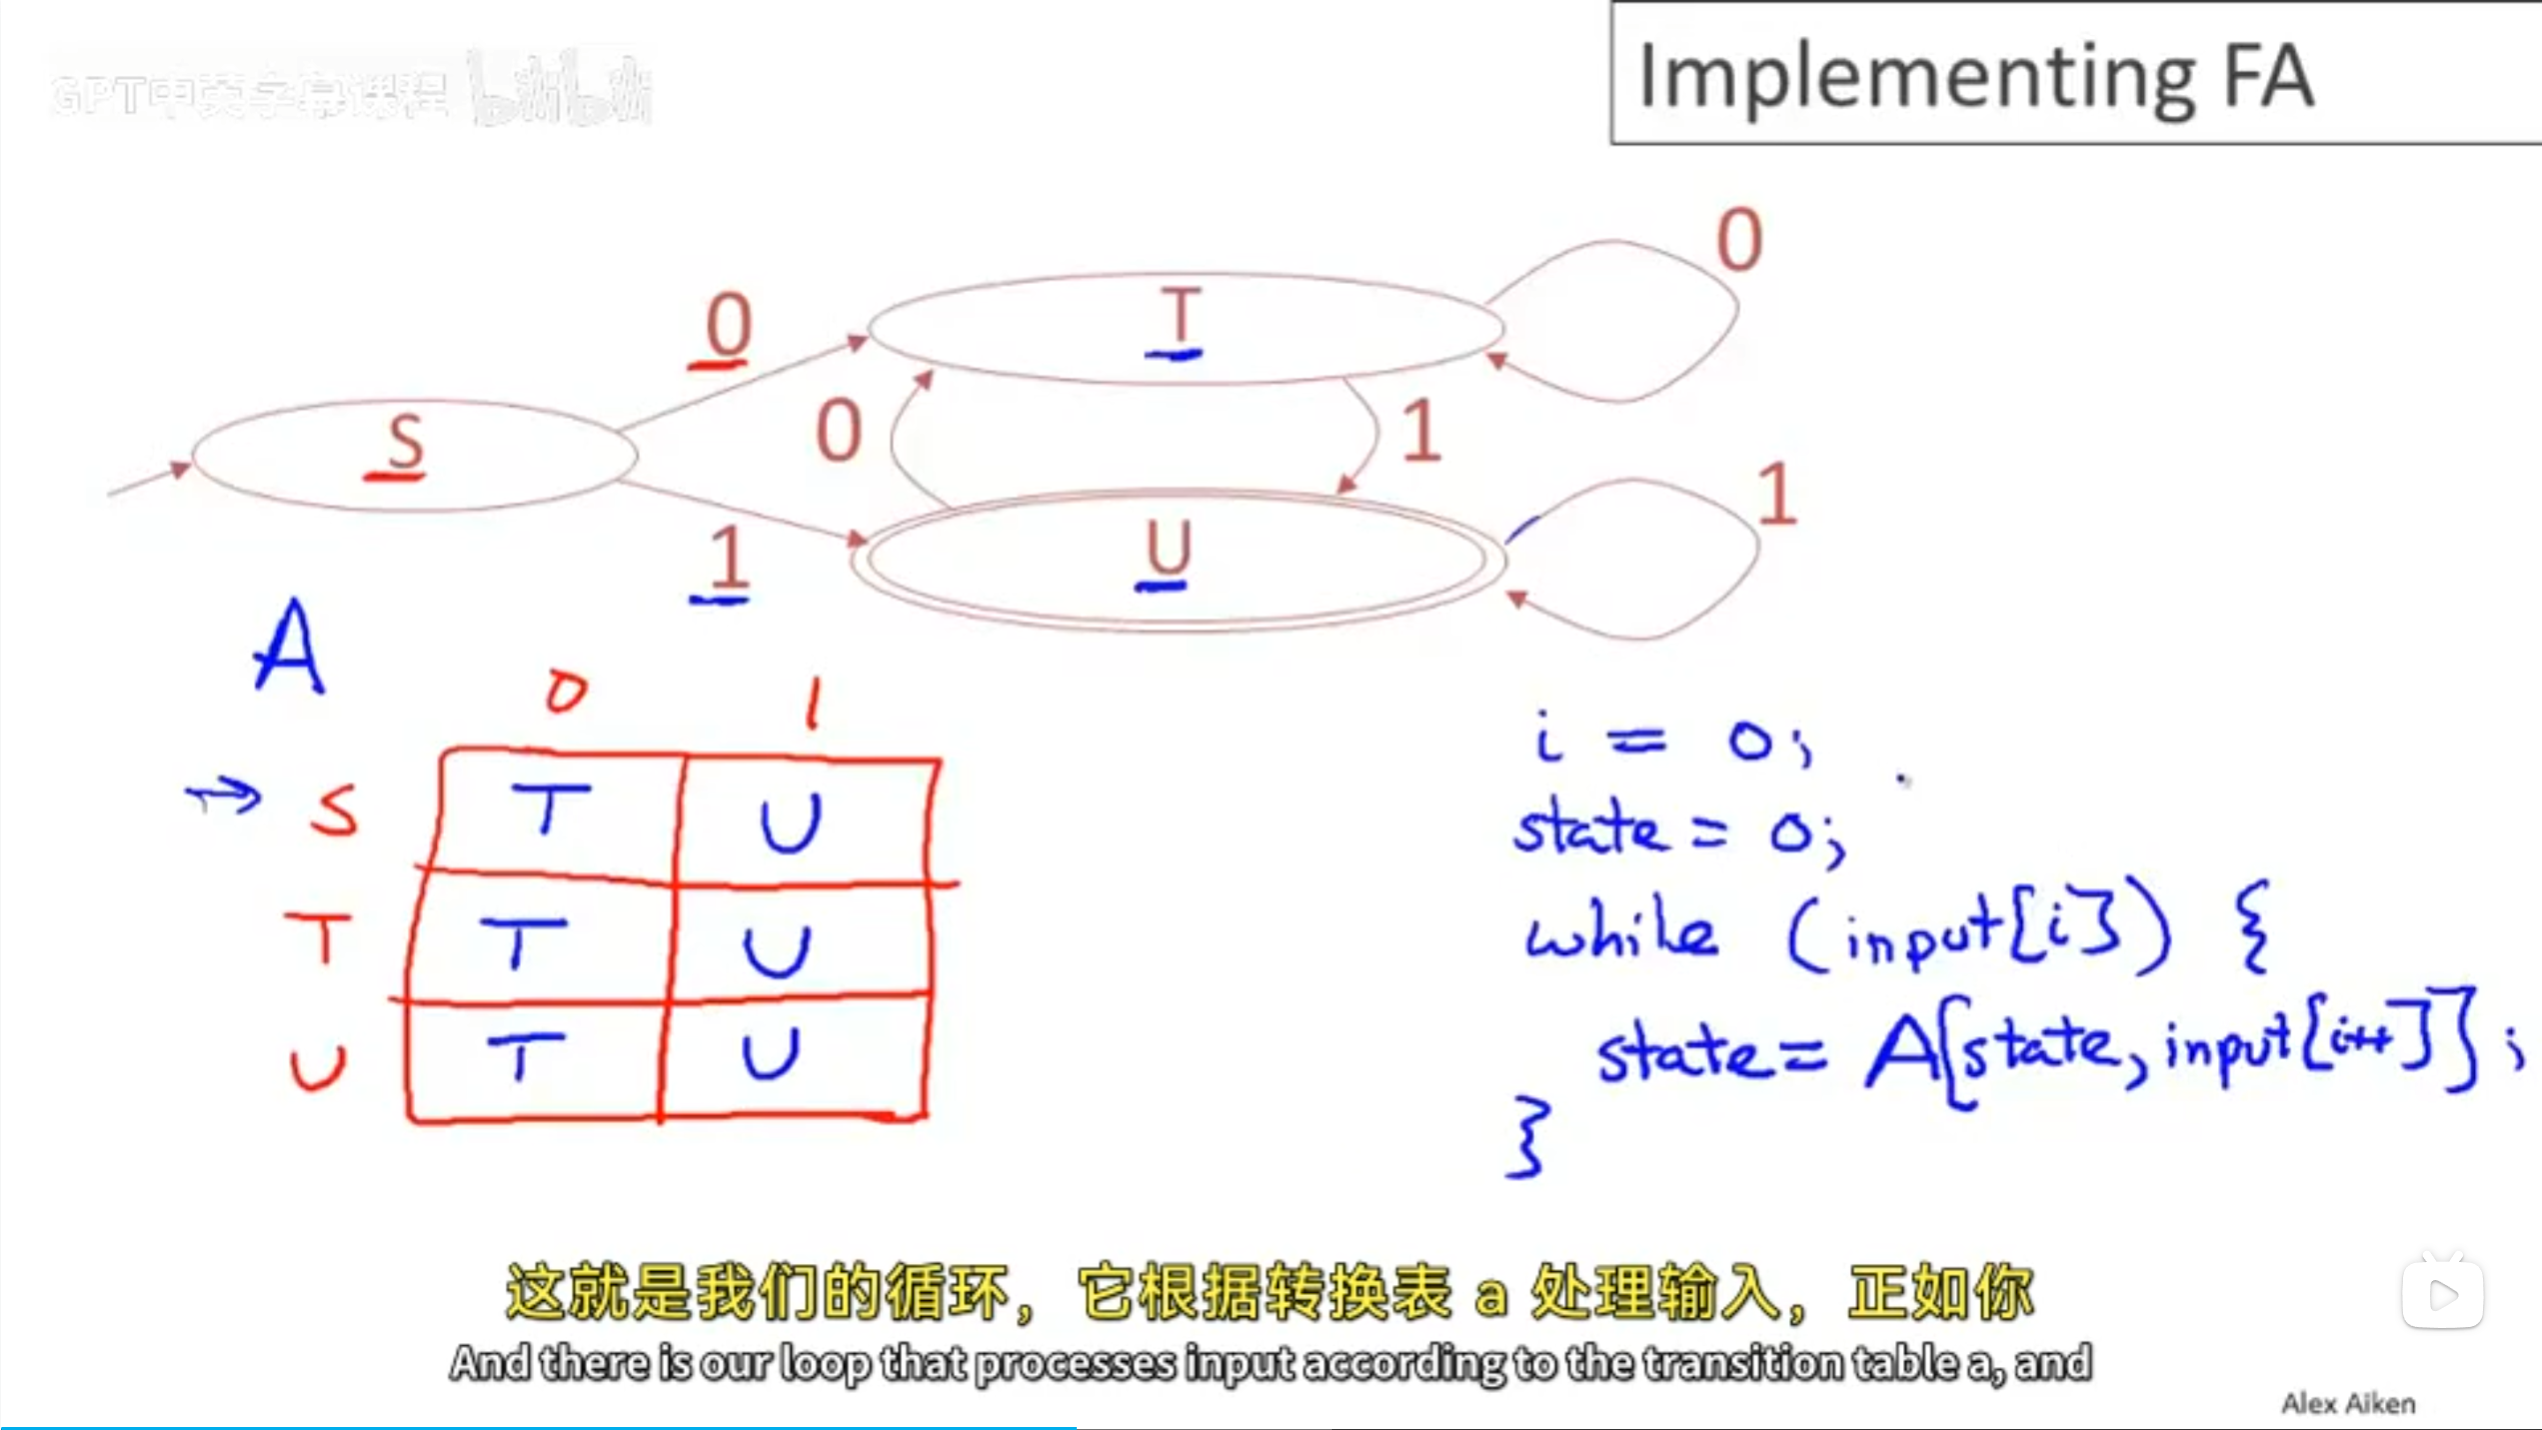 Implementing FA
GPT中英字幕课程 bilibili
0
0
T
S
0
1
1
1
U
A
0 1
S T U
T T U
U T U
i = 0;
state = 0;
while (input[i]) {
state = A[state, input[i++]];
}
这就是我们的循环，它根据转换表 a 处理输入，正如你
And there is our loop that processes input according to the transition table a, and
Alex Aiken